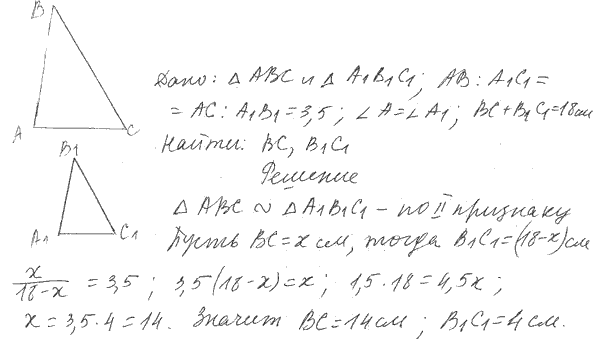 B
A
C
B1
A1
C1
Дано: △ ABC и △ A1B1C1; AB : A1C1 =
= AC : A1B1 = 3,5; ∠A = ∠A1; BC + B1C1 = 18 см
Найти: BC, B1C1
Решение
△ ABC ∾ △ A1B1C1 – по II признаку
Пусть BC = x см, тогда B1C1 = (18-x) см
x/(18-x) = 3,5; 3,5(18-x) = x; 1,5·18 = 4,5x;
x = 3,5·4 = 14. Значит BC = 14 см; B1C1 = 4 см.